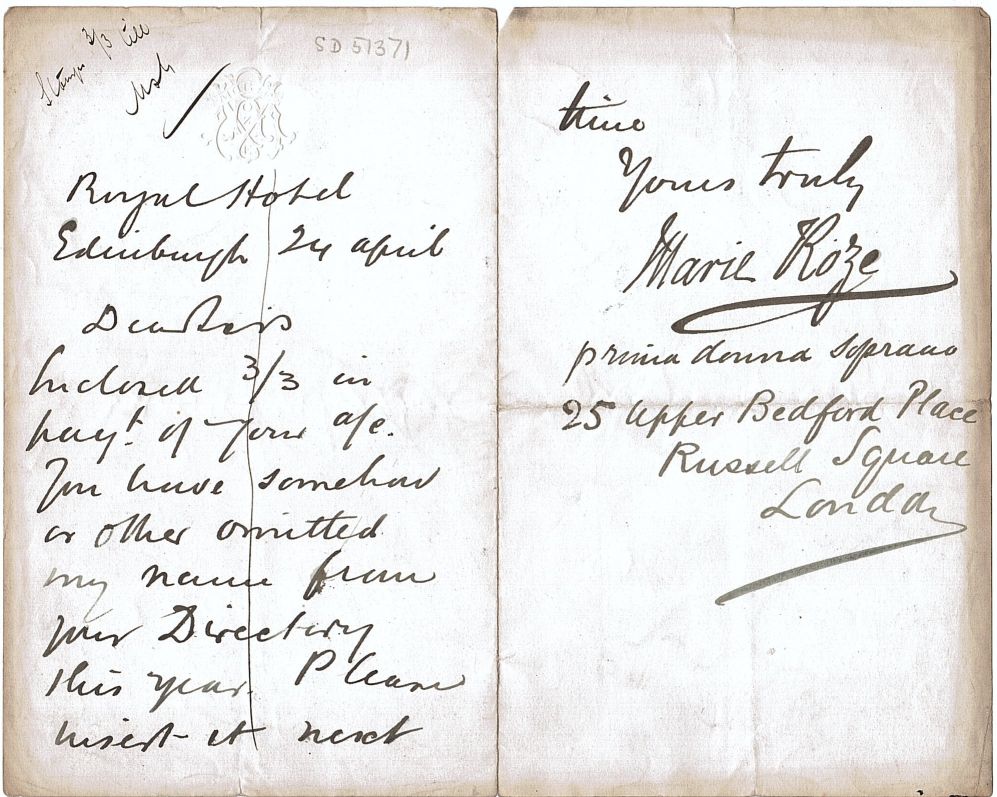 Stamps 3/3
SD 51371
Royal Hotel
Edinburgh 24 april
Dear Sirs
Inclosed 3/3 in
payt. of your a/c.
You have somehow
or other omitted
my name from
your Directory
this year. Please
insert it next
time
Yours truly
Marie Roze
prima donna soprano
25 Upper Bedford Place
Russell Square
London